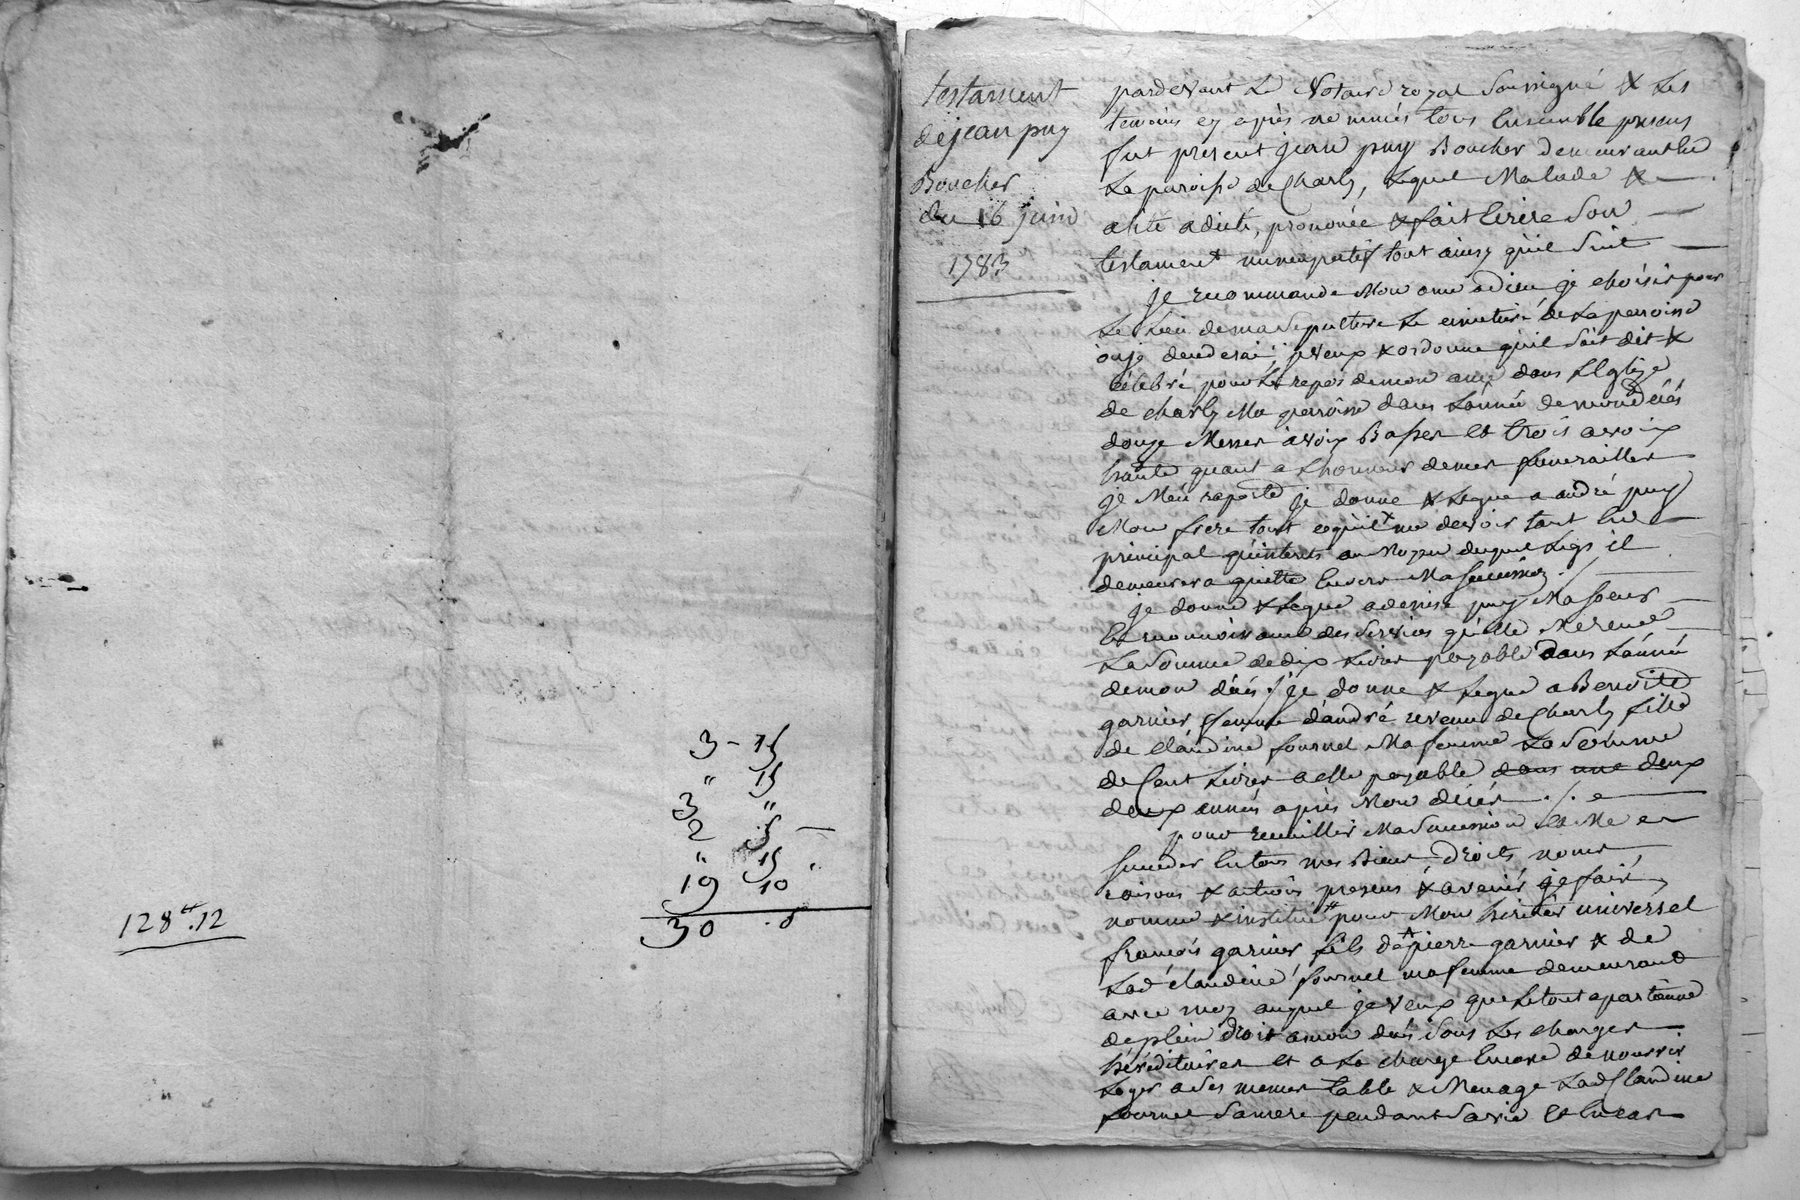 3 - 15
" 15
3 "
2 5 —
" 15
19 10
30 . 8
128 ₶ . 12
testament
de jean puy
Boucher
du 16 juin
1783
pardevant Le Notaire royal Soussigné & Les
temoins cy après nommés tous Ensemble presens
fut present jean puy Boucher demeurant
La paroisse de Charly, Lequel Malade &
alité a dicté, prononcé & fait Ecrire Son
testament nuncupatif tout ainsy qu'il Suit
je recommande Mon ame a dieu je choisis pour
Le Lieu de ma Sepulture Le cimetiere de La paroisse
ou je decederai, je veux & ordonne qu'il Soit dit &
célébré pour Le repos de mon ame dans L'Eglize
de charly Ma paroisse dans L'année de mon décés
douze Messes a voix Basses et trois a voix
haute quant a L'honneur de mes funerailles
je M'en raporte je donne & Legue a andré puy
Mon frere tout ce qu'il me devoir tant En
principal qu'interets au Moyen duquel Legs il
demeurera quitte Envers Ma Succession ./.
je donne & Legue a denise puy Ma Soeur
En reconnoissance des Services qu'elle M'a rendu
La Somme de dix Livres payable dans L'année
de mon décés ./. je donne & Legue a Benoite
garnier femme d'andré revenu de Charly fille
de claudine fournel Ma femme La Somme
de Cent Livres a elle payable dans une deux
deux années après Mon décés ./.
pour recueillir Ma Succession et Me
succeder En tous mes Biens Droits noms
raisons & actions presens & avenir je fais,
nomme & institue # pour Mon héritier universel
francois garnier fils de pierre garnier & de
Lad. claudine fournel ma femme demeurant
avec moy auquel je veux que Le tout apartienne
de plein droit a mon decés Sous Les charges
héréditaires et a La charge Encore de nourrir
Loger a Ses memes table & Menage Lad. Claudine
fournel Sa mere pendant Sa vie et En cas